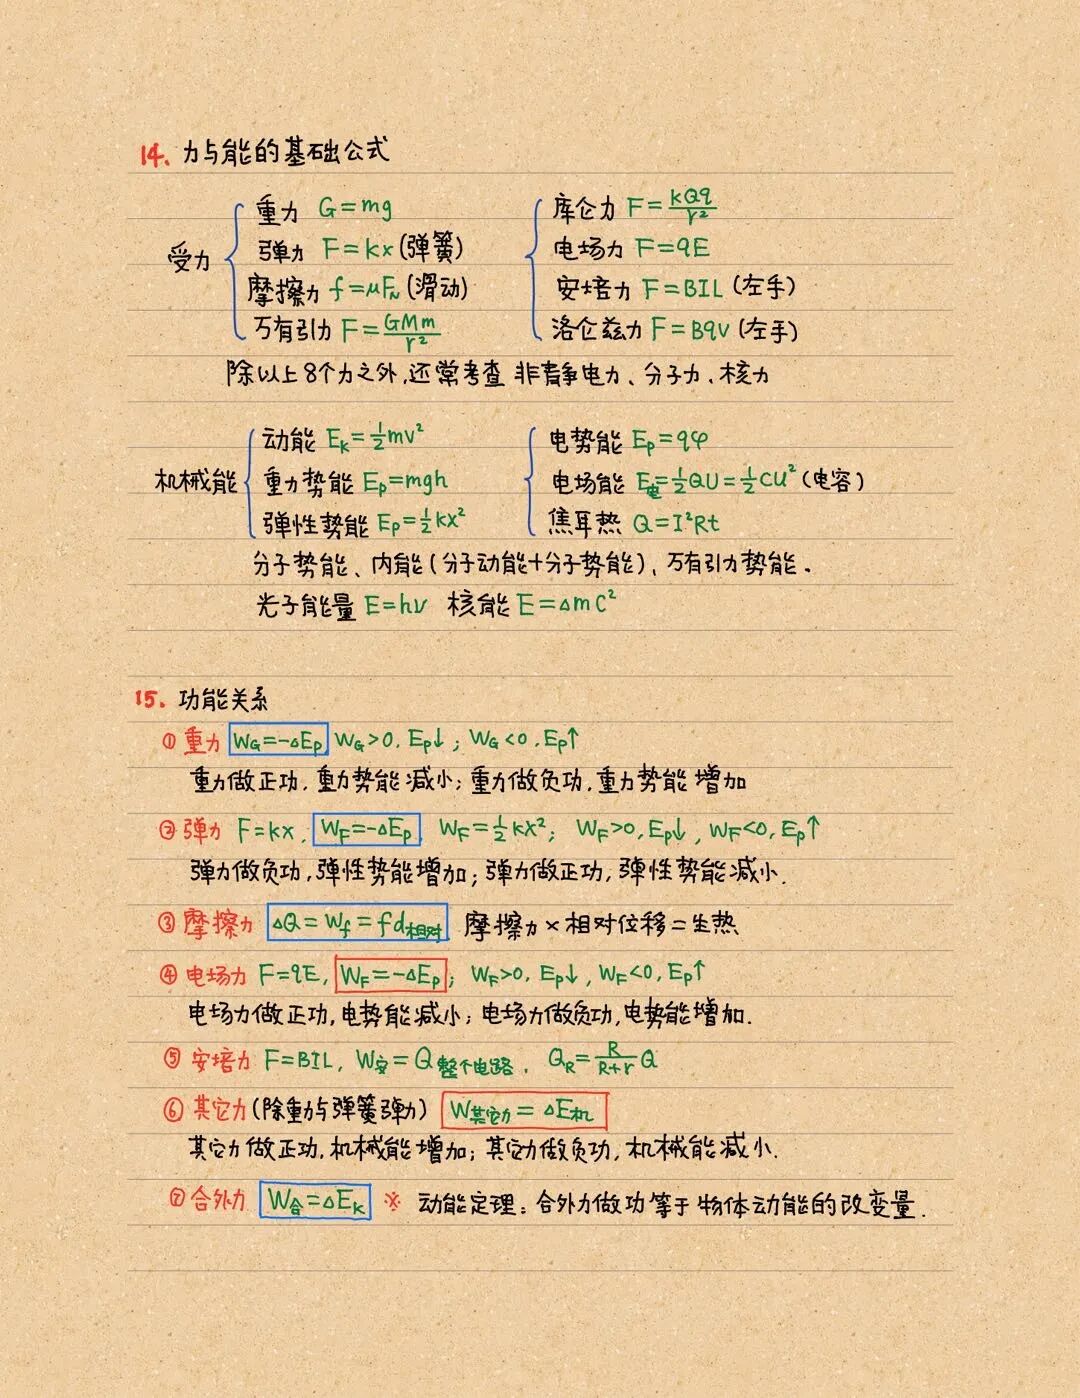 14. 力与能的基础公式
受力
重力 G=mg
弹力 F=kx(弹簧)
摩擦力 f=μF_N(滑动)
万有引力 F=GMm/r²
库仑力 F=kQq/r²
电场力 F=qE
安培力 F=BIL(左手)
洛仑兹力 F=Bqv(左手)
除以上8个力之外,还常考查 非静电力、分子力、核力
机械能
动能 E_k=½mv²
重力势能 E_p=mgh
弹性势能 E_p=½kx²
电势能 E_p=qφ
电场能 E_电=½QU=½CU²(电容)
焦耳热 Q=I²Rt
分子势能、内能(分子动能+分子势能)、万有引力势能.
光子能量 E=hν 核能 E=△mC²
15. 功能关系
① 重力 W_G=-△E_p W_G>0, E_p↓; W_G<0, E_p↑
重力做正功, 重力势能减小; 重力做负功, 重力势能增加
② 弹力 F=kx, W_F=-△E_p W_F=½kx²; W_F>0, E_p↓, W_F<0, E_p↑
弹力做负功, 弹性势能增加; 弹力做正功, 弹性势能减小.
③ 摩擦力 △Q=W_f=fd_相对 摩擦力×相对位移=生热
④ 电场力 F=qE, W_F=-△E_p; W_F>0, E_p↓, W_F<0, E_p↑
电场力做正功, 电势能减小; 电场力做负功, 电势能增加.
⑤ 安培力 F=BIL, W_安=Q_整个电路, Q_R=R/(R+r)Q
⑥ 其它力(除重力与弹簧弹力) W_其它力=△E_机
其它力做正功, 机械能增加; 其它力做负功, 机械能减小.
⑦ 合外力 W_合=△E_k ※ 动能定理: 合外力做功等于物体动能的改变量.